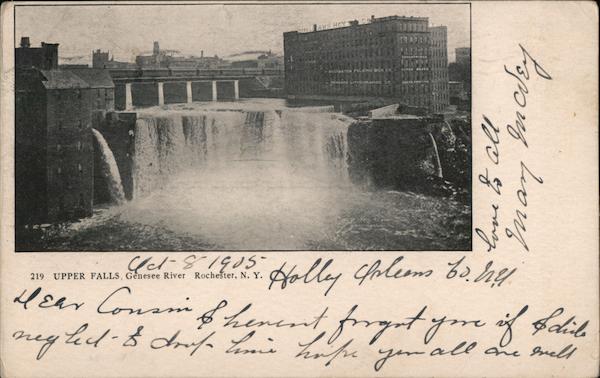 219 UPPER FALLS, Genesee River Rochester, N. Y.
Oct - 8 1905 Holly Orleans Co. NY
Dear Cousin I havent forgot you if I did
neglect to drop line hope you all are well
love to all
Mary